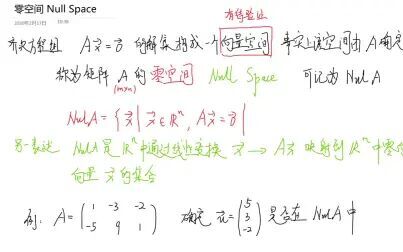 零空间 Null Space
2020年2月17日 10:36
有待验证
齐次方程组 Ax⃗=0⃗ 的解集构成一个向量空间 事实上该空间由A确定
称为矩阵 A 的零空间 Null Space 可记为 Nul A
(m×n)
Nul A = { x⃗ | x⃗ ∈ ℝⁿ, Ax⃗ = 0⃗ }
另一表达 Nul A 是 ℝⁿ 中通过线性变换 x⃗ → Ax⃗ 映射到 ℝᵐ 中零
向量 x⃗ 的集合
例: A = ( 1 -3 -2 ; -5 9 1 ) 确定 u⃗ = ( 5 ; 3 ; -2 ) 是否在 Nul A 中